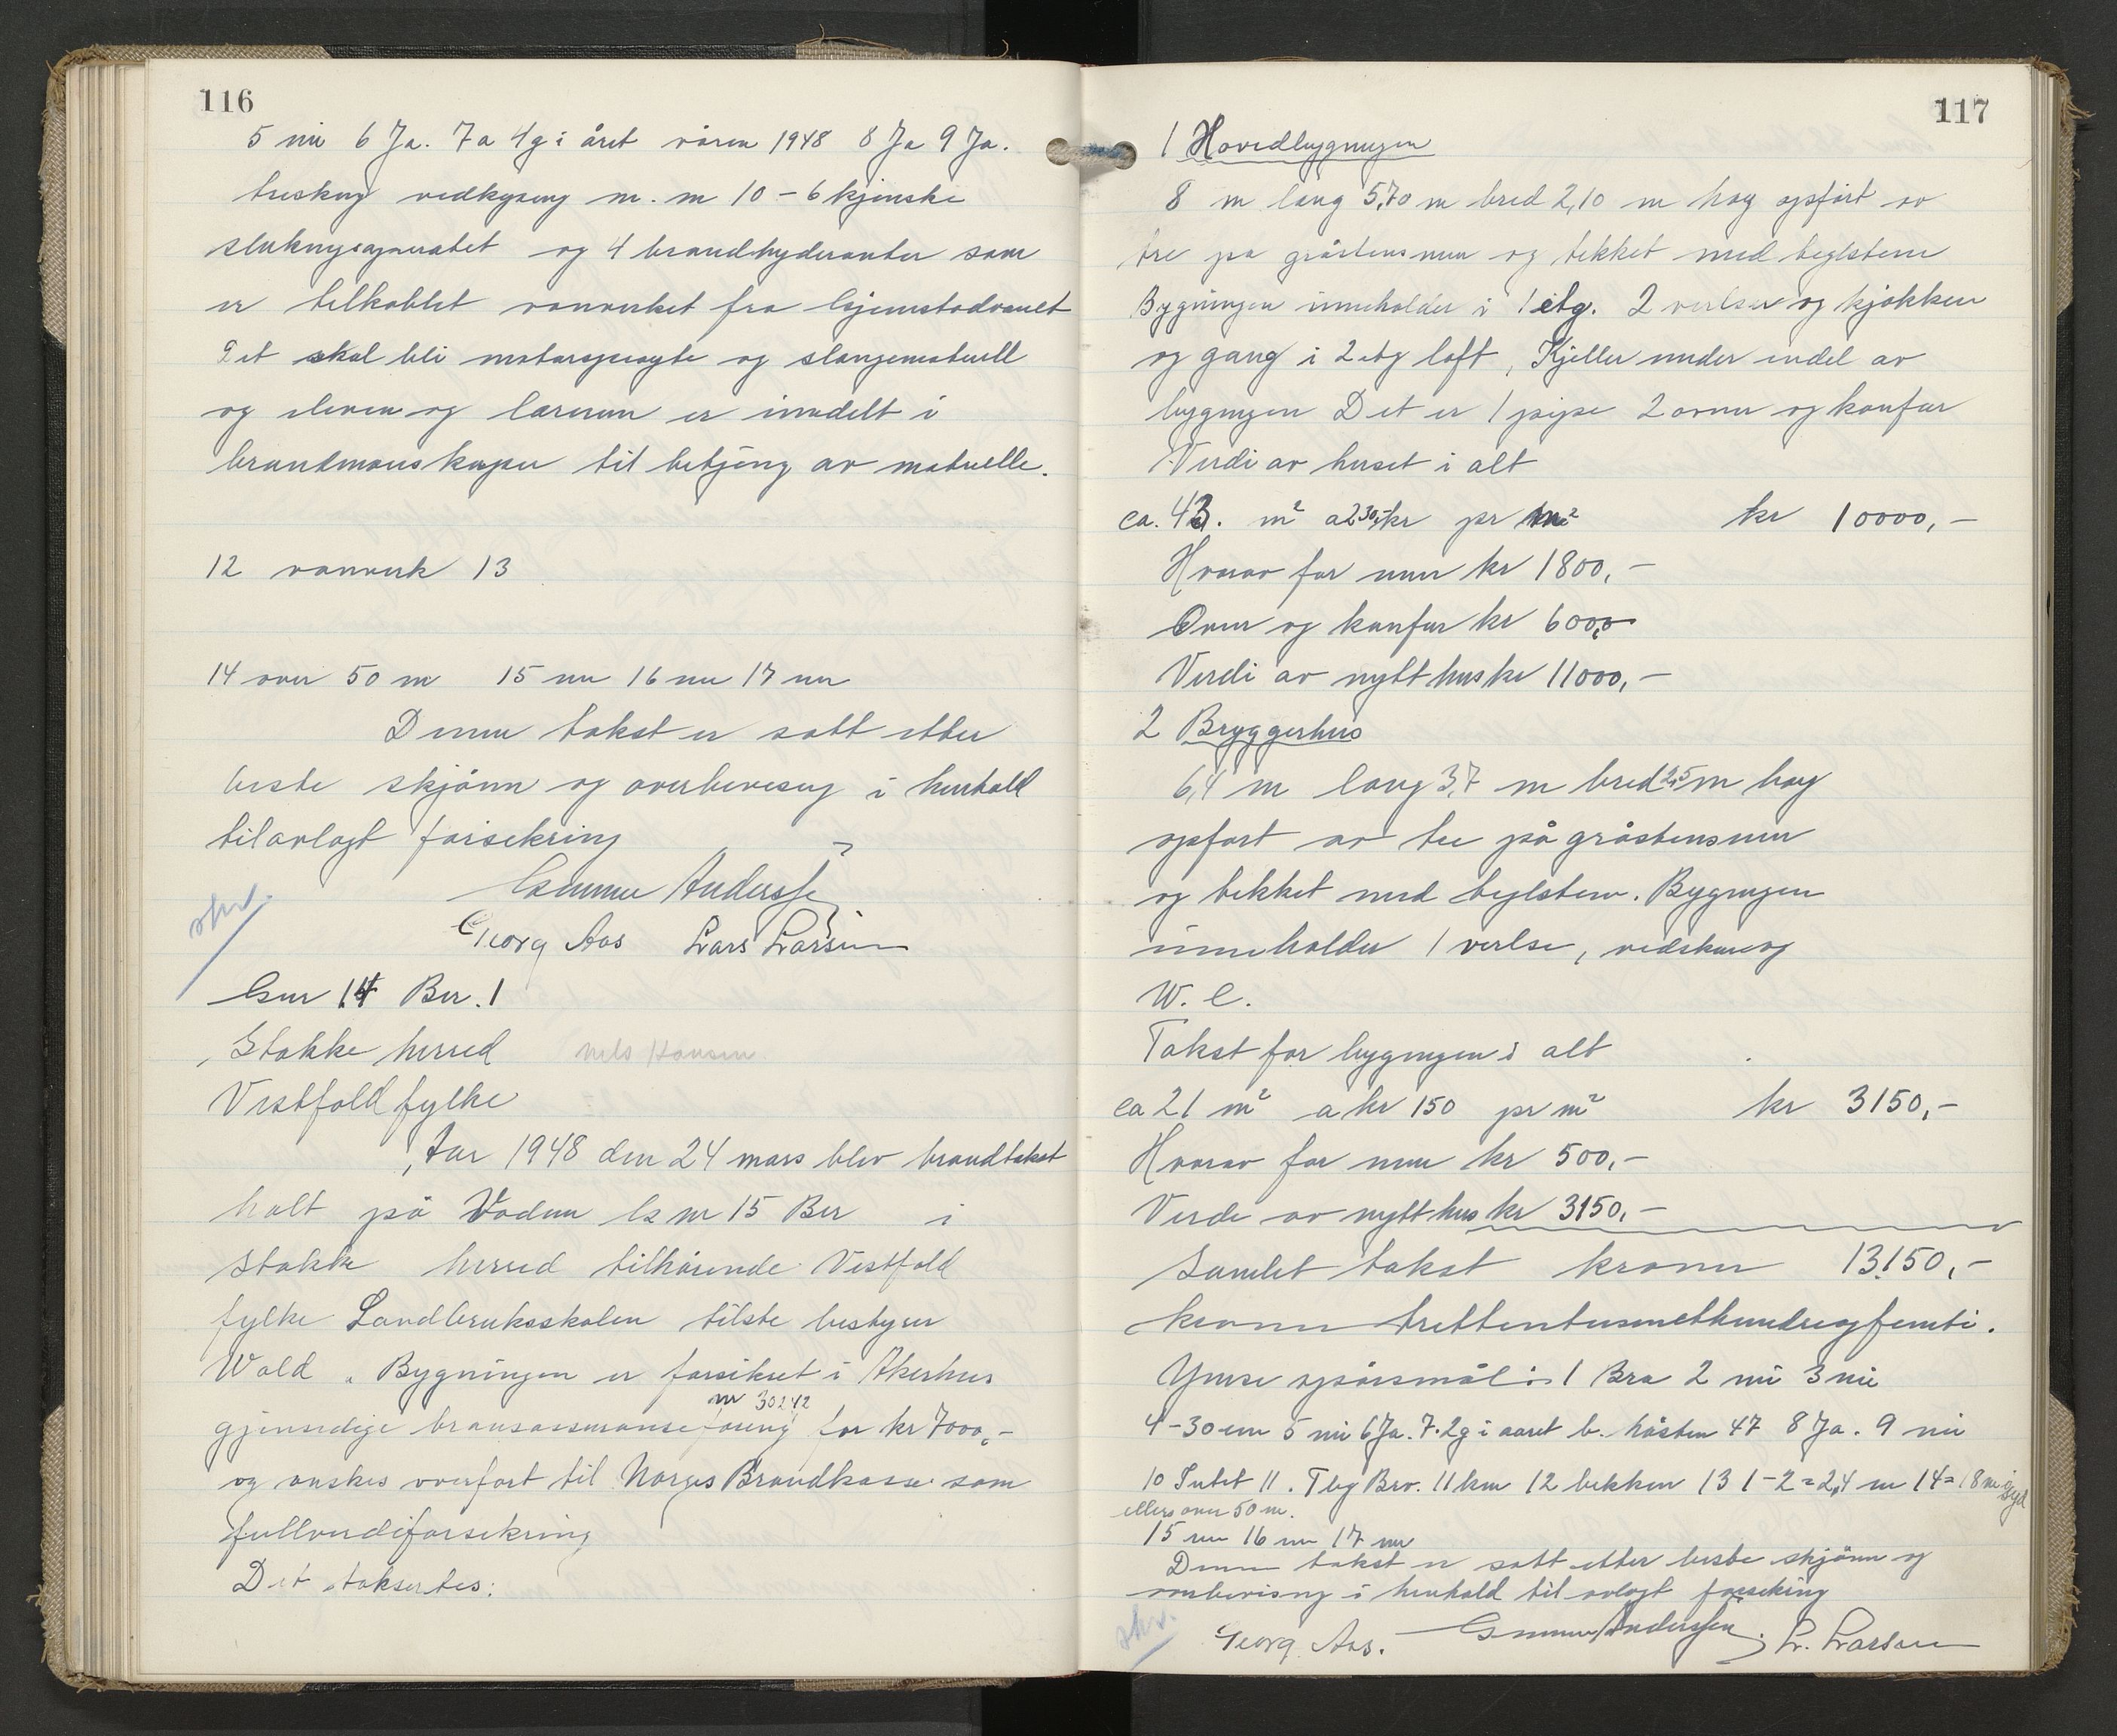 116
5 nei 6 Ja. 7 a 4 g i året våren 1948 8 Ja 9 Ja.
tresking vedkapping m.m 10 - 6 kjemiske
slukningsapparater og 4 brandhyderanter som
er tilkoblet vanverket fra Gjennestadvanet
Det skal bli motorsprøyte og slangemateriell
og elever og lærerne er inndelt i
brandmanskaper til betjening av materielle.
12 vanverk 13
14 over 50 m 15 nei 16 nei 17 nei
Denne takst er satt etter
beste skjønn og overbevisning i henhold
til avlagt forsikring
Gunnar Anderssen
Georg Aas Lars Larsen
skr.
Gnr 14 Bnr. 1
Stokke herred Nels Hansen
Vestfold fylke
Aar 1948 den 24 mars blev brandtakst
holt på Vadum Gnr 15 Bnr i
Stokke herred tilhørende Vestfold
fylke Landbruksskolen tilste bestyrer
Wold. Bygningen er forsikret i Akershus
nr 30242
gjensidige branassuranseforening for kr 7000,-
og ønskes overført til Norges Brandkasse som
fullverdiforsikring
Det taksertes:
117
1 Hovedbygningen
8 m lang 5,70 m bred 2,10 m høy opført av
tre på gråstensmur og tekket med teglstene
Bygningen inneholder i 1 etg. 2 verlser og kjøkken
og gang i 2 etg loft, Kjeller under endel av
bygningen Det er 1 pipe 2 ovner og komfur
Verdi av huset i alt
ca. 43. m² a 230,- kr pr m² kr 10000,-
Hvorav for mur kr 1800,-
Ovner og komfur kr 600,0
Verdi av nytt hus kr 11000,-
2 Bryggerhus
6,4 m lang 3,7 m bred 2,5 m høy
opført av tre på gråstensmur
og tekket med teglsten. Bygningen
inneholder 1 verlse, vedskur og
W. C.
Takst for bygningen i alt
ca 21 m² a kr 150 pr m² kr 3150,-
Hvorav for mur kr 500,-
Verdi av nytt hus kr 3150,-
Samlet takst kroner 13.150,-
kroner trettentusenetthundreogfemti.
Ymse spørsmål: 1 Bra 2 nei 3 nei
4 - 30 cm 5 nei 6 Ja. 7. 2 g i aaret b. høsten 47 8 Ja. 9 nei
10 Intet 11. Tbg Brv. 11 km 12 bekken 13 1-2 = 2,4 m 14 = 18 m i syd
ellers over 50 m.
15 nei 16 nei 17 nei
Denne takst er satt etter beste skjønn og
overbevisning i henhold til avlagt forsikring
skr.
Georg Aas. Gunnar Anderssen. L. Larsen